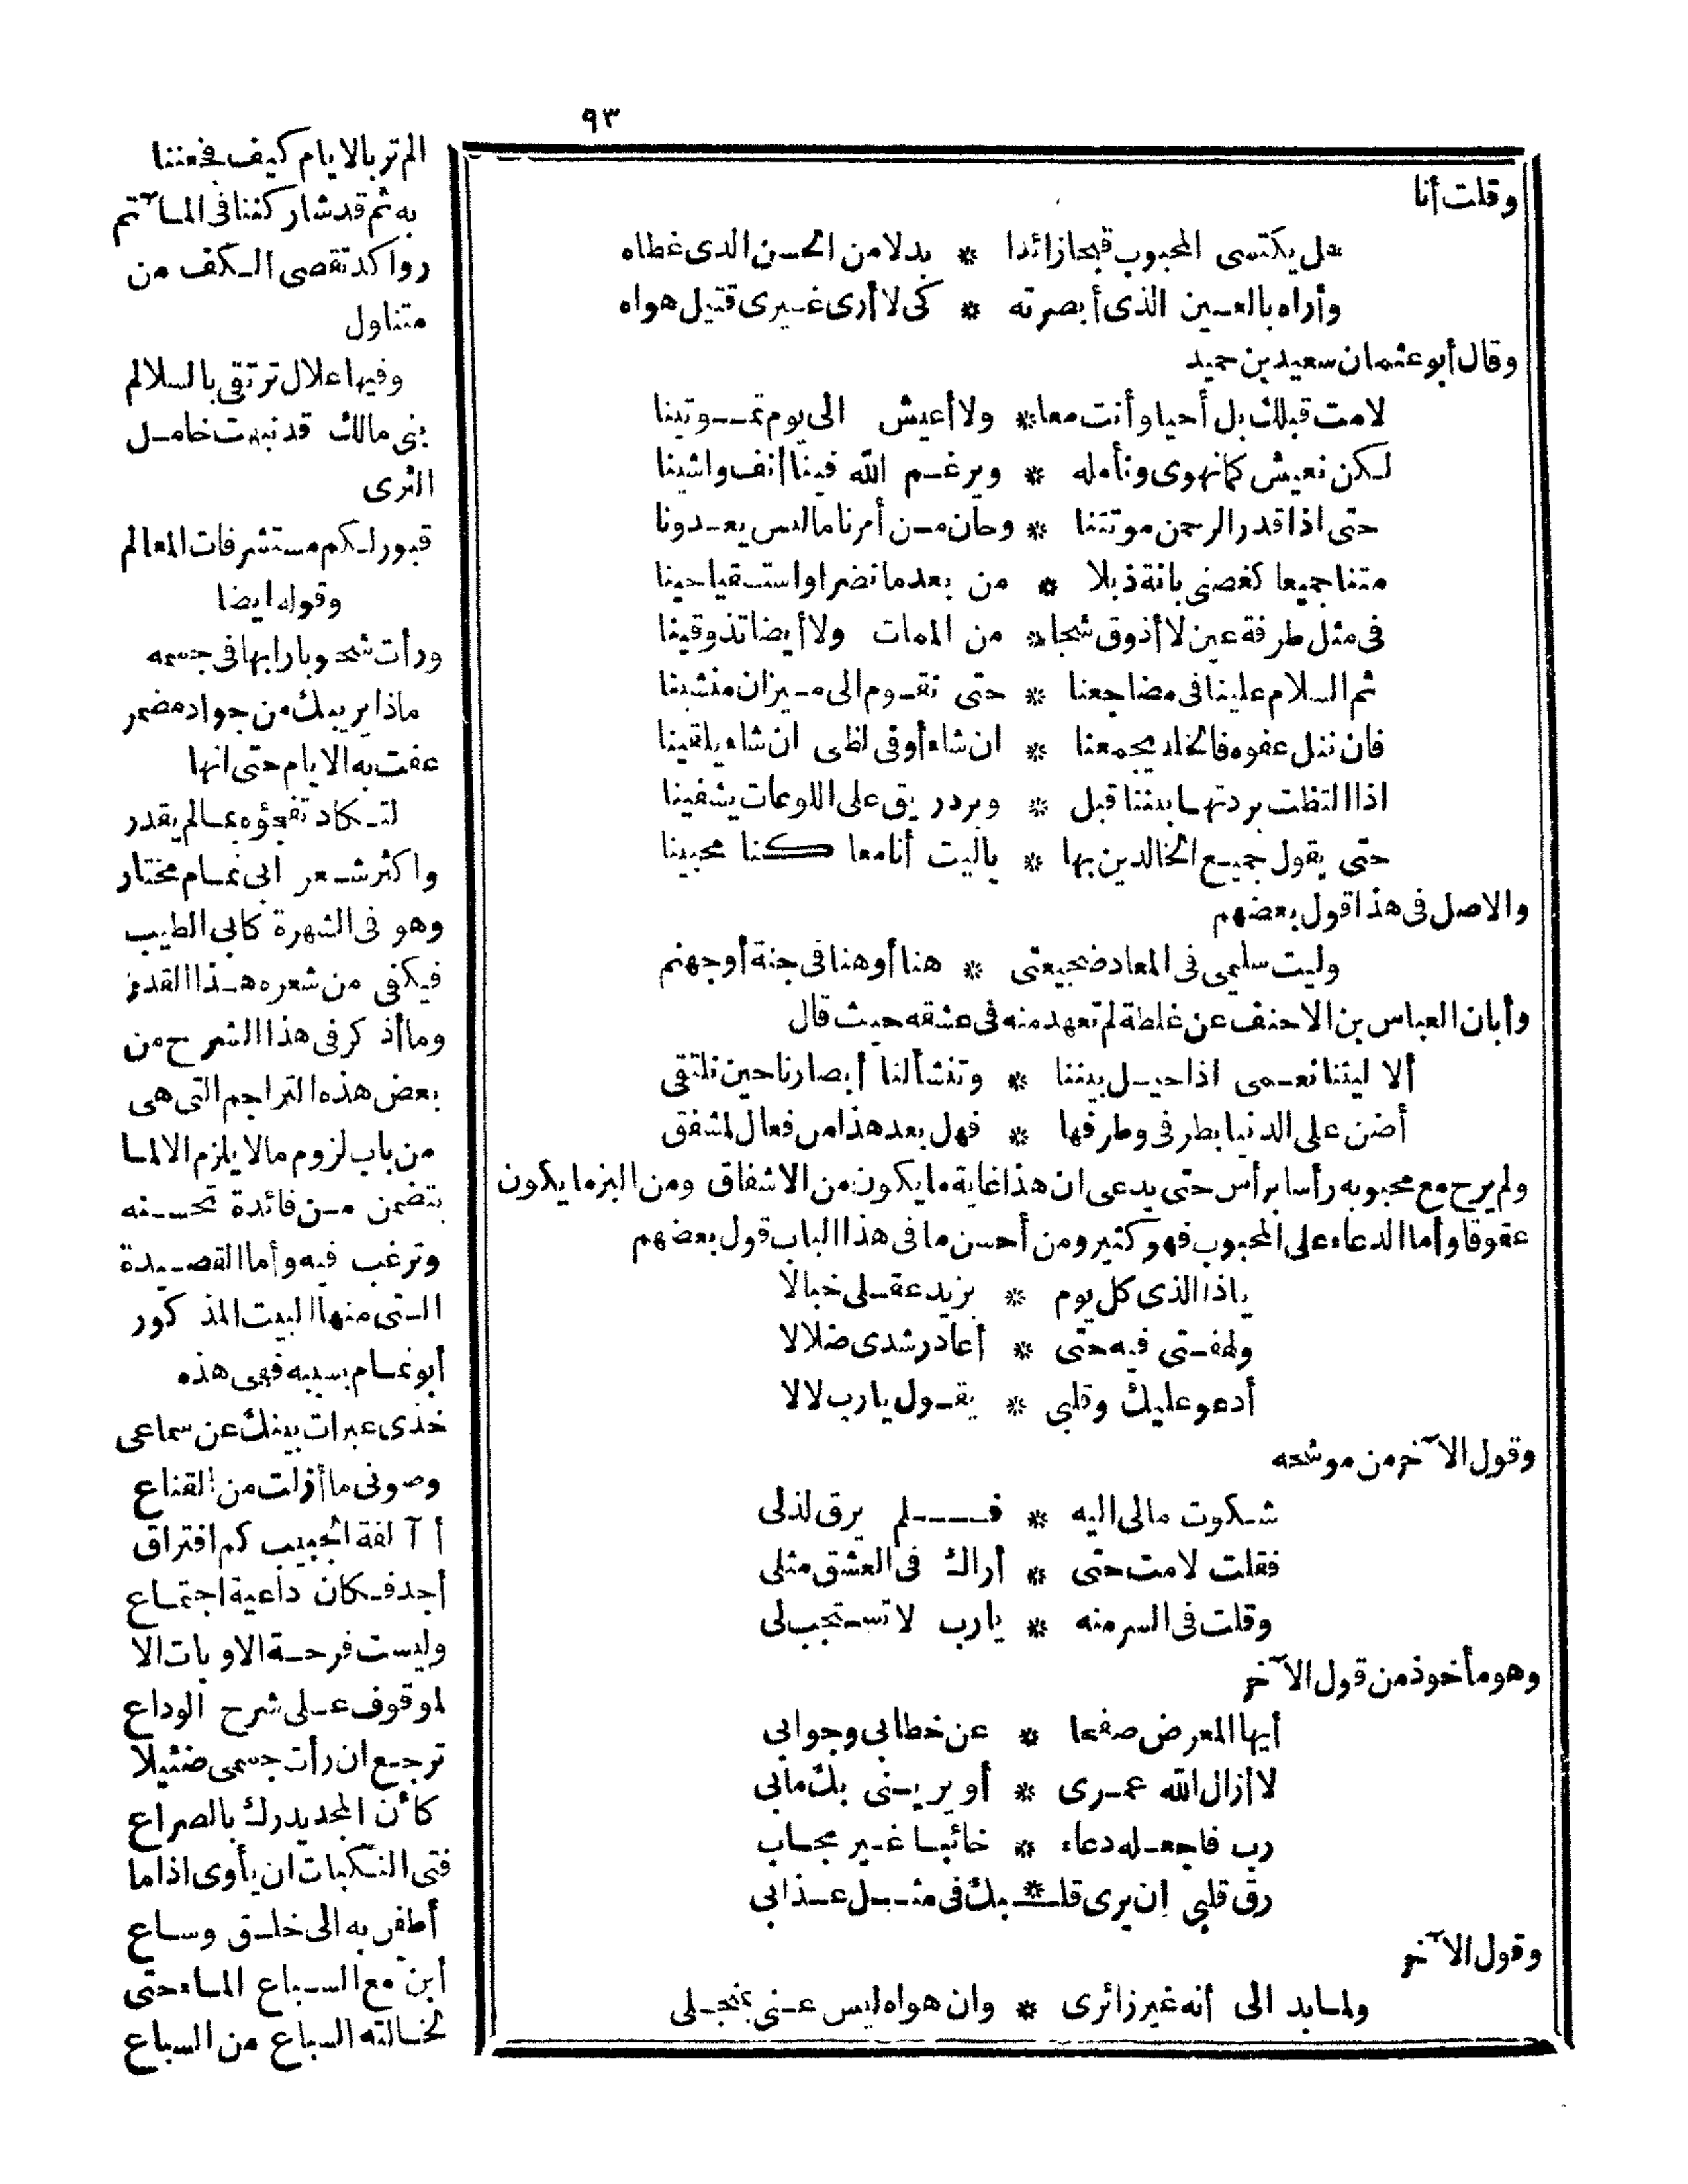 ٩٣
وقلت أنا
هل يكتسى المحبوب قبحا زائدا * بدلا من الحسن الذى غطاه
وأراه بالعين الذى أبصرته * كى لا أرى غيرى قتيل هواه
وقال أبو عثمان سعيد بن حميد
لا مت قبلك بل أحيا وأنت معا * ولا أعيش الى يوم تموتينا
لكن نعيش كما نهوى ونأمله * ويرغم الله فينا انف واشينا
حتى اذا قدر الرحمن موتتنا * وحان من أمرنا ما ليس يعدونا
متنا جميعا كغصنى بانة ذبلا * من بعد ما نضرا واستسقيا حينا
فى مثل طرفة عين لا أذوق شجا * من الممات ولا أيضا تذوقينا
ثم السلام علينا فى مضاجعنا * حتى نقوم الى ميزان منشينا
فان ننل عفوه فالخلد يجمعنا * ان شاء أو فى لظى ان شاء يلقينا
اذا التظت بردتها بيننا قبل * وبرد ريق على اللوعات يشفينا
حتى يقول جميع الخالدين بها * ياليت أنا معا كنا محبينا
والاصل فى هذا قول بعضهم
وليت سليمى فى المعاد ضجيعتى * هنا أو هنا فى جنة أو جهنم
وأبان العباس بن الاحنف عن غلطة لم تعهد منه فى عشقه حيث قال
ألا ليتنا نعمى اذا حيل بيننا * وتنشأ لنا أبصارنا حين نلتقى
أضن على الدنيا بطرفى وطرفها * فهل بعد هذا من فعال لمشفق
ولم يرح مع محبوبه رأسا برأس حتى يدعى ان هذا غاية ما يكون من الاشفاق ومن البر ما يكون
عقوقا وأما الدعاء على المحبوب فهو كثير ومن أحسن ما فى هذا الباب قول بعضهم
ياذا الذى كل يوم * يزيد عقلى خبالا
ولهفتى فيه حتى * أعاد رشدى ضلالا
أدعو عليك وقلبى * يقول يارب لالا
وقول الآخر من موشحه
شكوت مالى اليه * فلم يرق لذلى
فقلت لا مت حتى * أراك فى العشق مثلى
وقلت فى السر منه * يارب لا تستجب لى
وهو مأخوذ من قول الآخر
أيها المعرض صفحا * عن خطابى وجوابى
لا أزال الله عمرى * أو يرينى بك مابى
رب فاجعله دعاء * خائبا غير مجاب
رق قلبى ان يرى قلـ * ـبك فى مثل عذابى
وقول الآخر
ولما بدا لى أنه غير زائرى * وان هواه ليس عنى بمنجلى
الم تر بالايام كيف فجعننا
به ثم قد شاركننا فى المآتم
رواكد تقصى الكف من
متناول
وفيها علال ترتقى بالسلالم
بنى مالك قد نبهت خامل
الثرى
قبور لكم مستشرفات المعالم
وقوله ايضا
ورأت شحوبا رابها فى جسمه
ماذا يريبك من جواد مضمر
عفت به الايام حتى انها
لتكاد تفجؤه بما لم يقدر
واكثر شعر أبى تمام مختار
وهو فى الشهرة كابى الطيب
فيكفى من شعره هذا القدر
وما أذكر فى هذا الشرح من
بعض هذه التراجم التى هى
من باب لزوم مالا يلزم الا لما
يتضمن من فائدة تحسنه
وترغب فيه وأما القصيدة
التى منها البيت المذكور
أبو تمام بسببه فهى هذه
خذى عبرات بينك عن سماعى
وصونى ما أزلت من القناع
أآلفة الحبيب كم افتراق
أجد فكان داعية اجتماع
وليست فرحة الاوبات الا
لموقوف على شرح الوداع
ترجيع ان رأت جسمى ضئيلا
كأن المجد يدرك بالصراع
فتى النكبات ان يأوى اذا ما
أطفن به الى خلق وساع
أبن مع السباع الماء حتى
لخالته السباع من السباع